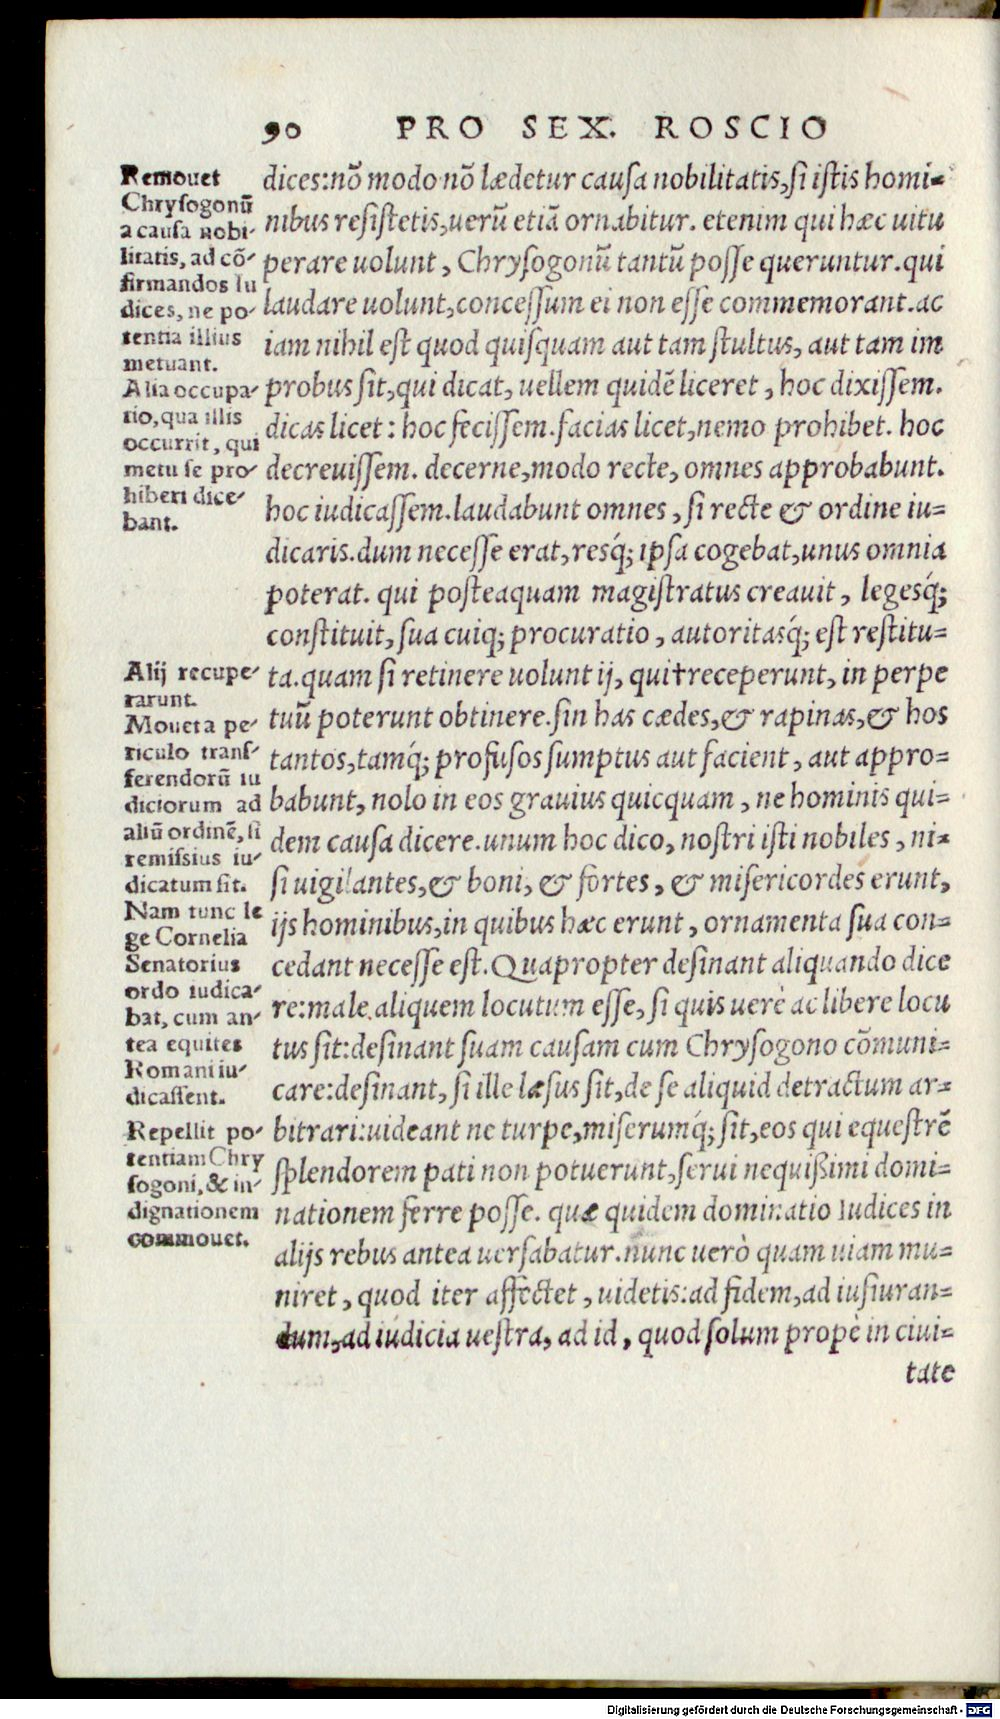 90 PRO SEX. ROSCIO
Remouet
Chrysogonū
a causa nobi-
litatis, ad cō-
firmandos Iu
dices, ne po-
tentia illius
metuant.
Alia occupa-
tio, qua illis
occurrit, qui
metu se pro-
hiberi dice-
bant.
Alij recupe-
rarunt.
Mouet a pe-
riculo trans-
ferendorū iu
diciorum ad
aliū ordinē, si
remissius iu-
dicatum sit.
Nam tunc le
ge Cornelia
Senatorius
ordo iudica-
bat, cum an-
tea equites
Romani iu-
dicassent.
Repellit po-
tentiam Chry
sogoni, & in-
dignationem
commouet.
dices: nō modo nō lædetur causa nobilitatis, si istis homi-
nibus resistetis, uerū etiā ornabitur. etenim qui hæc uitu
perare uolunt, Chrysogonū tantū posse queruntur. qui
laudare uolunt, concessum ei non esse commemorant. ac
iam nihil est quod quisquam aut tam stultus, aut tam im
probus sit, qui dicat, uellem quidē liceret, hoc dixissem.
dicas licet: hoc fecissem. facias licet, nemo prohibet. hoc
decreuissem. decerne, modo recte, omnes approbabunt.
hoc iudicassem. laudabunt omnes, si recte & ordine iu-
dicaris. dum necesse erat, resq́; ipsa cogebat, unus omnia
poterat. qui posteaquam magistratus creauit, legesq́;
constituit, sua cuiq; procuratio, autoritasq́; est restitu-
ta. quam si retinere uolunt ij, qui †receperunt, in perpe
tuū poterunt obtinere. sin has cædes, & rapinas, & hos
tantos, tamq́; profusos sumptus aut facient, aut appro-
babunt, nolo in eos grauius quicquam, ne hominis qui-
dem causa dicere. unum hoc dico, nostri isti nobiles, ni-
si uigilantes, & boni, & fortes, & misericordes erunt,
ijs hominibus, in quibus hæc erunt, ornamenta sua con-
cedant necesse est. Quapropter desinant aliquando dice
re: male aliquem locutum esse, si quis uerè ac libere locu
tus sit: desinant suam causam cum Chrysogono cōmuni-
care: desinant, si ille læsus sit, de se aliquid detractum ar-
bitrari: uideant ne turpe, miserumq́; sit, eos qui equestrē
splendorem pati non potuerunt, serui nequißimi domi-
nationem ferre posse. quæ quidem dominatio Iudices in
alijs rebus antea uersabatur. nunc uerò quam uiam mu-
niret, quod iter affectet, uidetis: ad fidem, ad iusiuran-
dum, ad iudicia uestra, ad id, quod solum propè in ciui-
tate
Digitalisierung gefördert durch die Deutsche Forschungsgemeinschaft - DFG